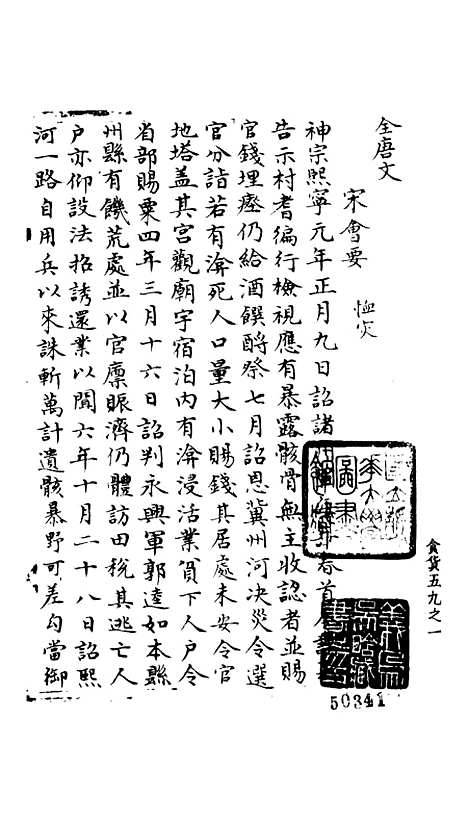 食貨五九之一
全唐文
宋會要 恤災
神宗熙寧元年正月九日詔諸春首
告示村耆徧行檢視應有暴露骸骨無主收認者並賜
官錢埋瘞仍給酒饌酹祭七月詔恩冀州河決災令選
官分詣若有渰死人口量大小賜錢其居處未安令官
地塔盖其宮觀廟宇宿泊内有渰浸活業貧下人户令
省部賜粟四年三月十六日詔判永興軍郭逵如本縣
州縣有饑荒處並以官廪賑濟仍體訪田税其逃亡人
户亦仰設法招誘還業以聞六年十月二十八日詔熙
河一路自用兵以來誅斬萬計遺骸暴野可差勾當御
50341